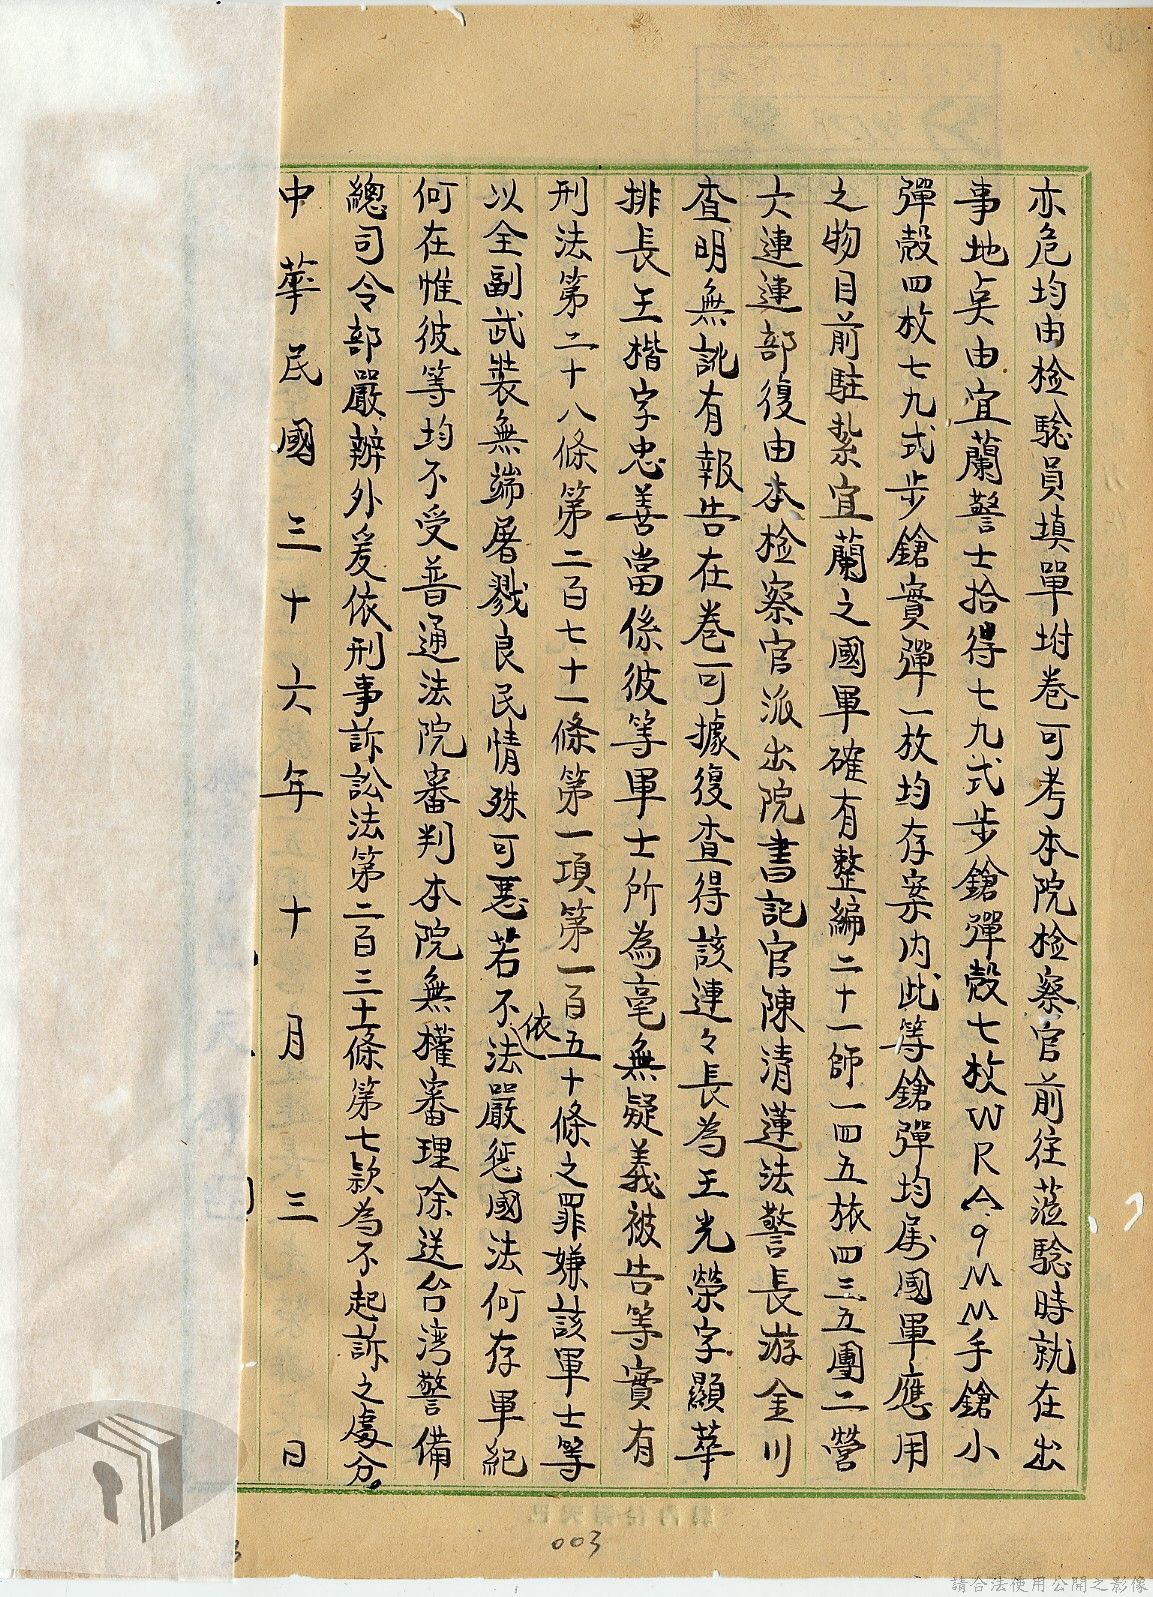 亦危均由检驗員填單坿卷可考本院检察官前往蒞驗時就在出
事地点由宜蘭警士拾得七九式步鎗彈殼七枚WRA.9MM手鎗小
彈殼四枚七九式步鎗實彈一枚均存案內此等鎗彈均屬國軍應用
之物目前駐紮宜蘭之國軍確有整編二十一師一四五旅四三五團二營
六連連部復由本检察官派出院書記官陳清蓮法警長游金川
查明無訛有報告在卷可據復查得該連々長為王光榮字顯華
排長王楷字忠善當係彼等軍士所為毫無疑義被告等實有
刑法第二十八條第二百七十一條第一項第一百五十條之罪嫌該軍士等
以全副武裝無端屠戮良民情殊可惡若不依法嚴惩國法何存軍紀
何在惟彼等均不受普通法院審判本院無權審理除送台湾警備
總司令部嚴辦外爰依刑事訴訟法第二百三十一條第七款為不起訴之處分。
中華民國三十六年十月三日
003
請合法使用公開之影像